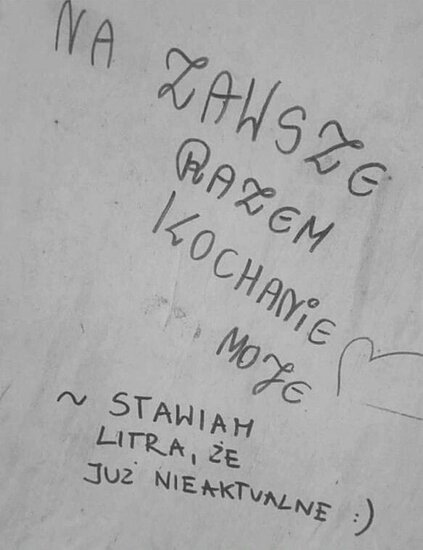 NA ZAWSZE
RAZEM
KOCHANIE
MOJE
~ STAWIAM
LITRA, ŻE
JUŻ NIEAKTUALNE :)